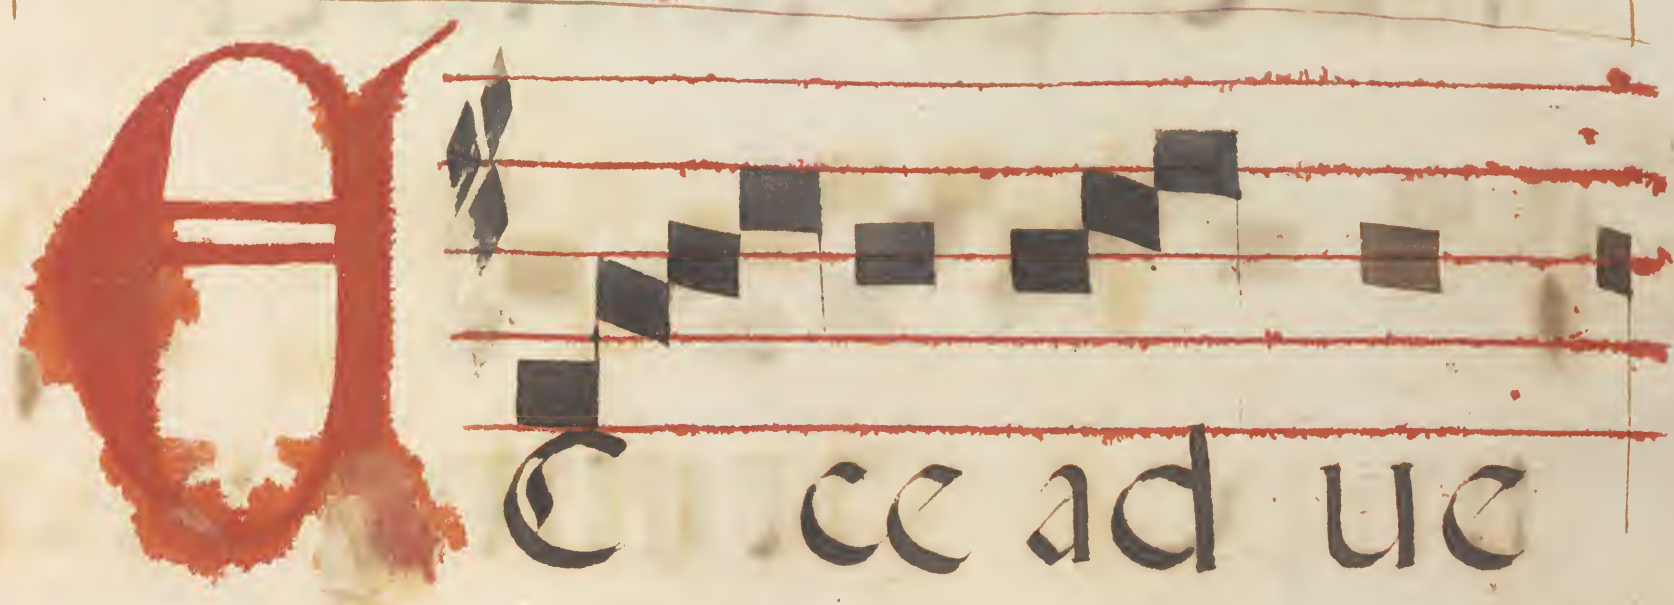 ECce ad ue